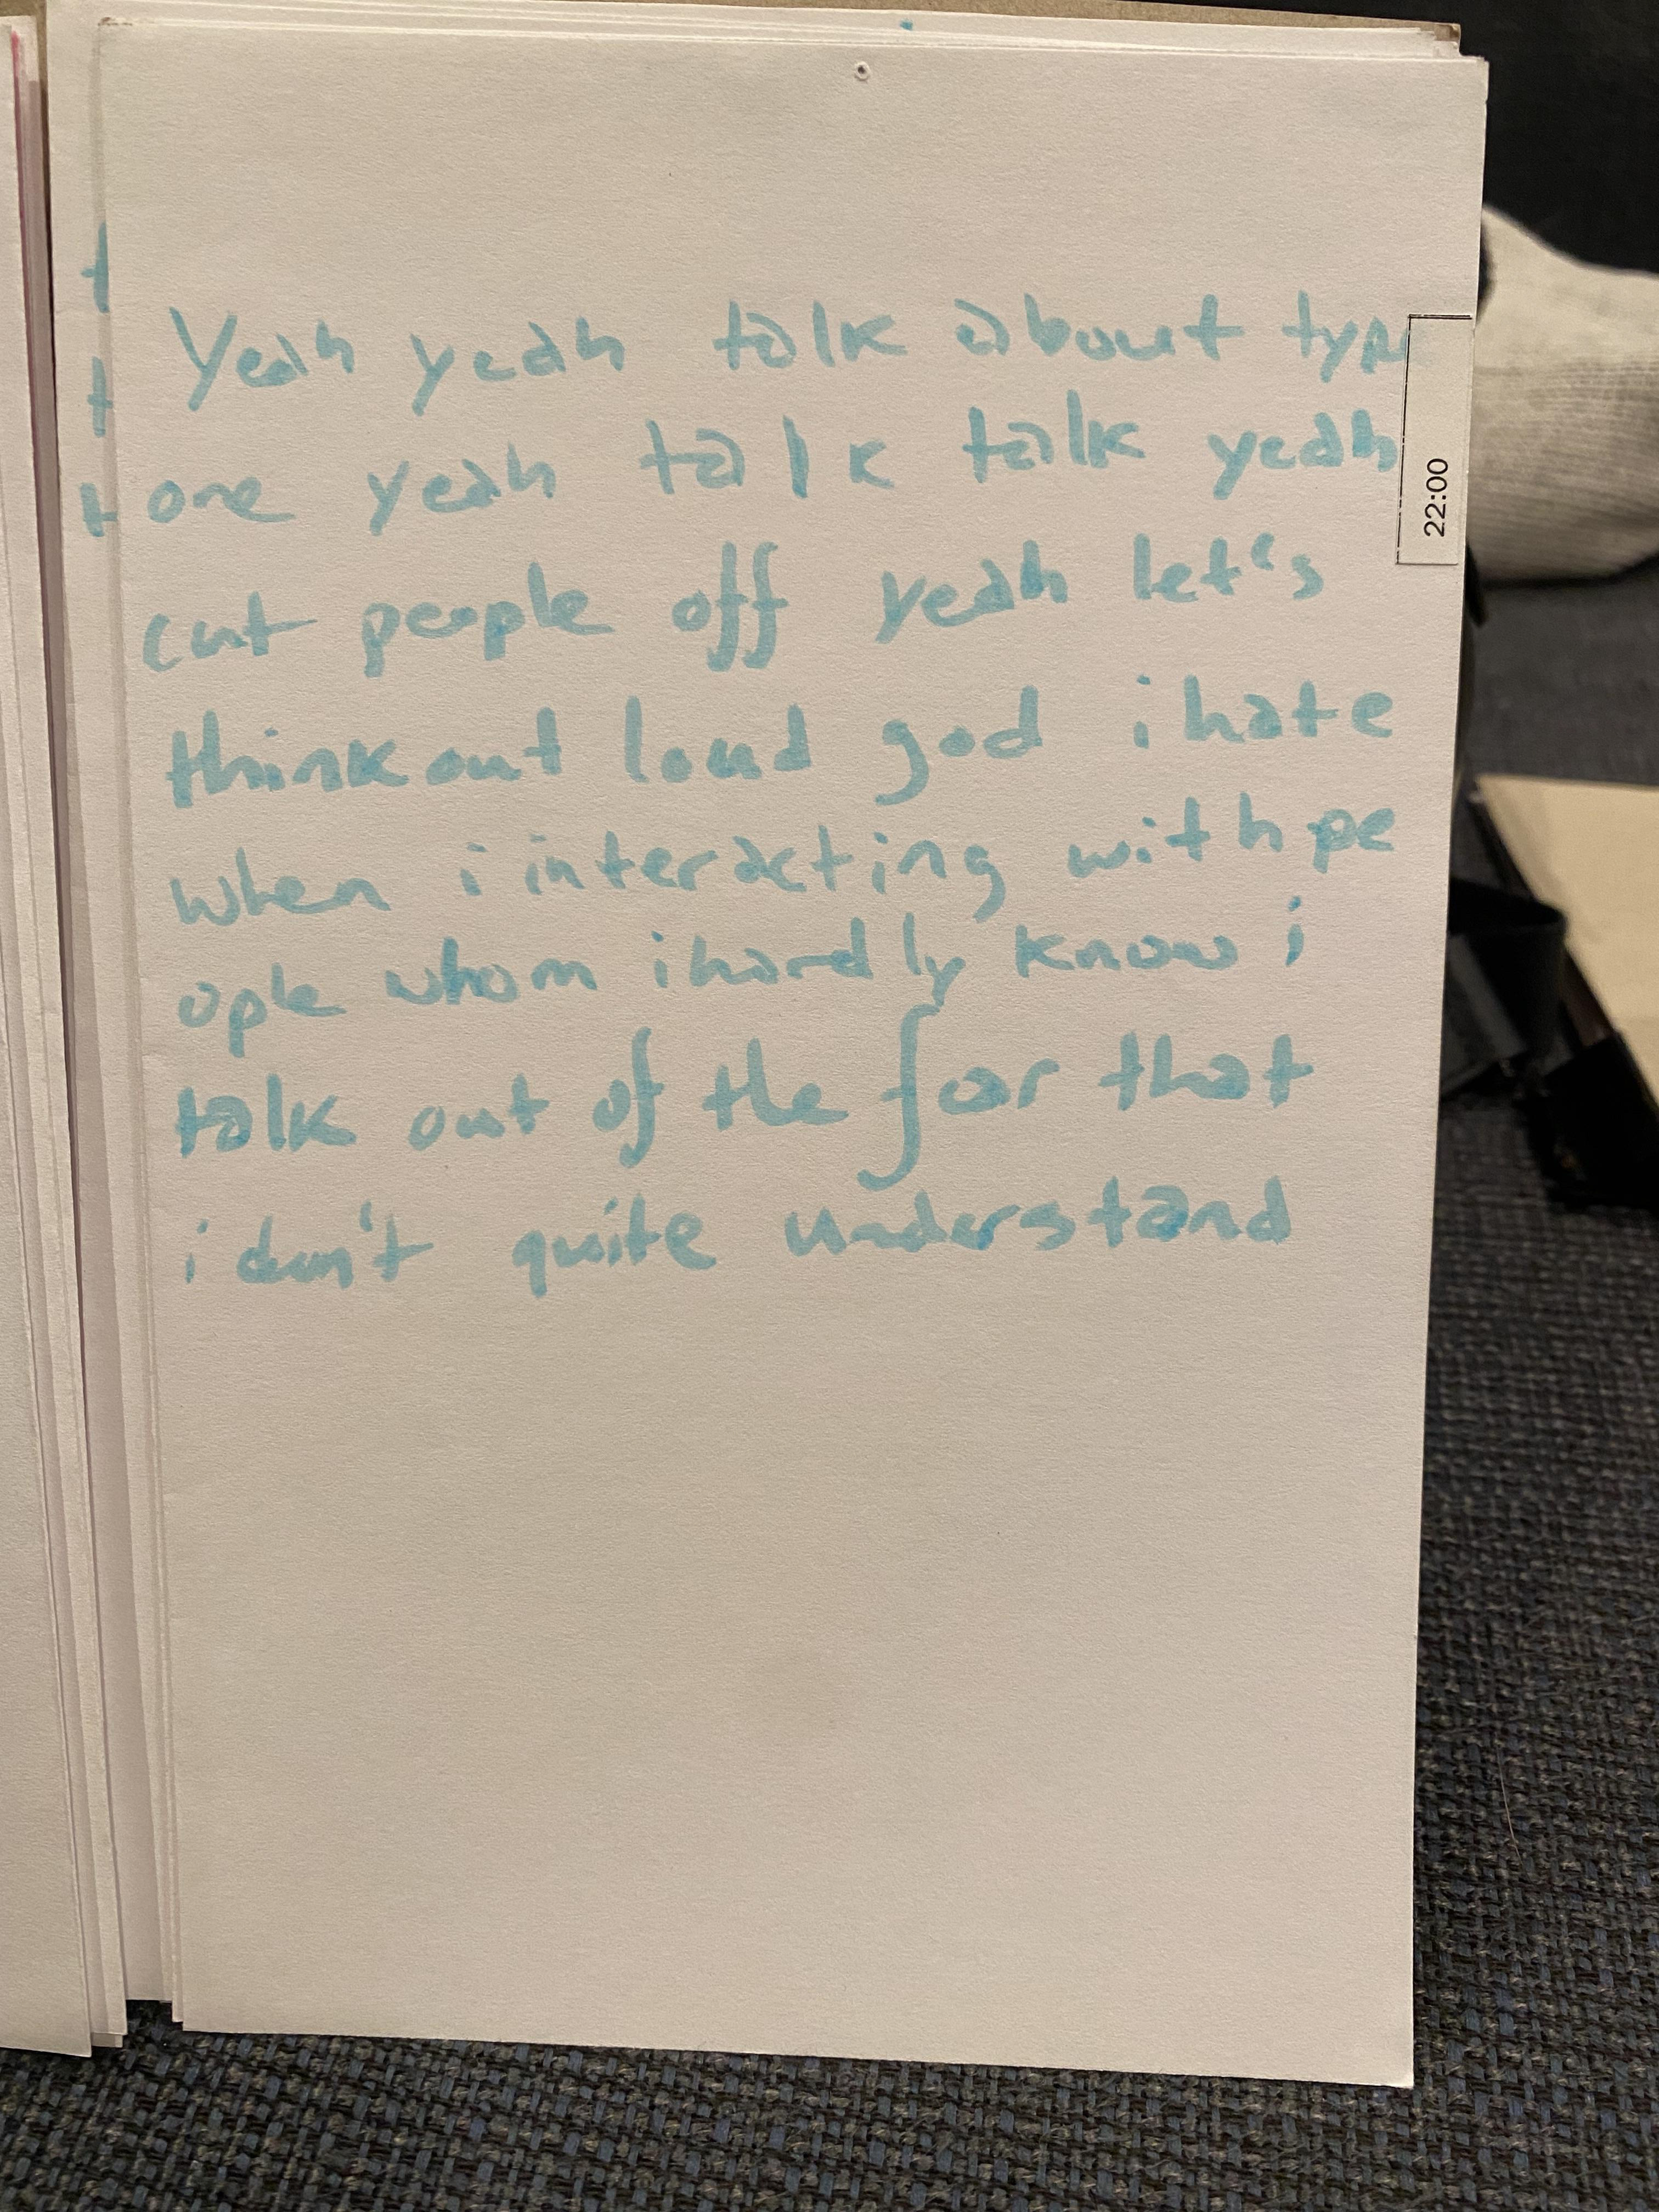 Yeah yeah talk about type
one yeah talk talk yeah
cut people off yeah let's
think out loud god i hate
when i interacting with pe
ople whom i hardly know i
talk out of the fear that
i don't quite understand
22:00